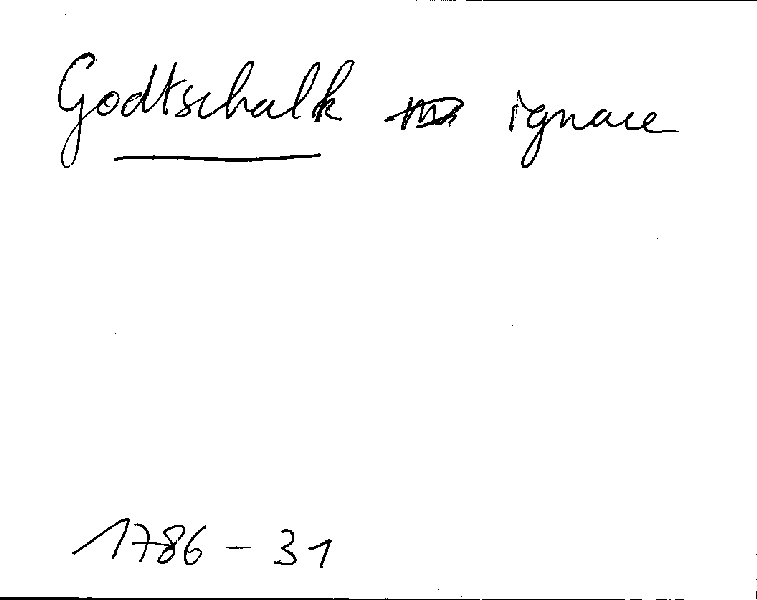 Godtschalk ignace
1786 - 31